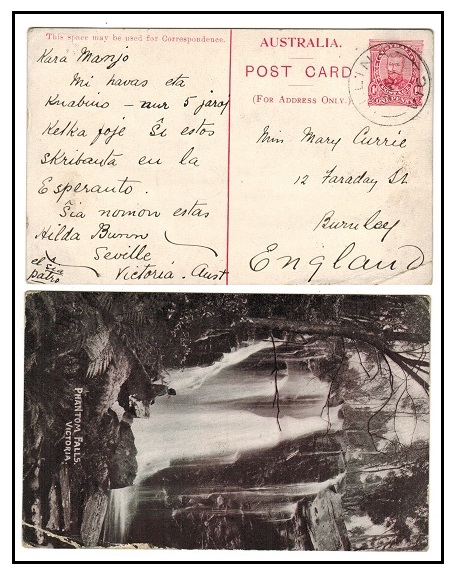 This space may be used for Correspondence.
Kara Manjo
Mi havas eta
Knabino - nur 5 jaroj
Kelka foje Ŝi estos
skribanta en la
Esperanto.
Ŝia nomon estas
Hilda Bunn
Seville
Victoria. Aust
el
patro
AUSTRALIA.
POST CARD
(FOR ADDRESS ONLY.)
Miss Mary Currie
12 Faraday St
Burnley
England
PHANTOM FALLS,
VICTORIA.